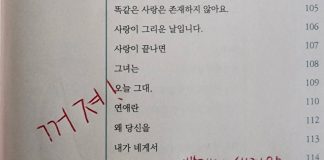 똑같은 사랑은 존재하지 않아요. 105
사랑이 그리운 날입니다. 106
사랑이 끝나면 107
그녀는 108
오늘 그대, 109
연애란 110
왜 당신을 111
내가 네게서 113
114
꺼져!